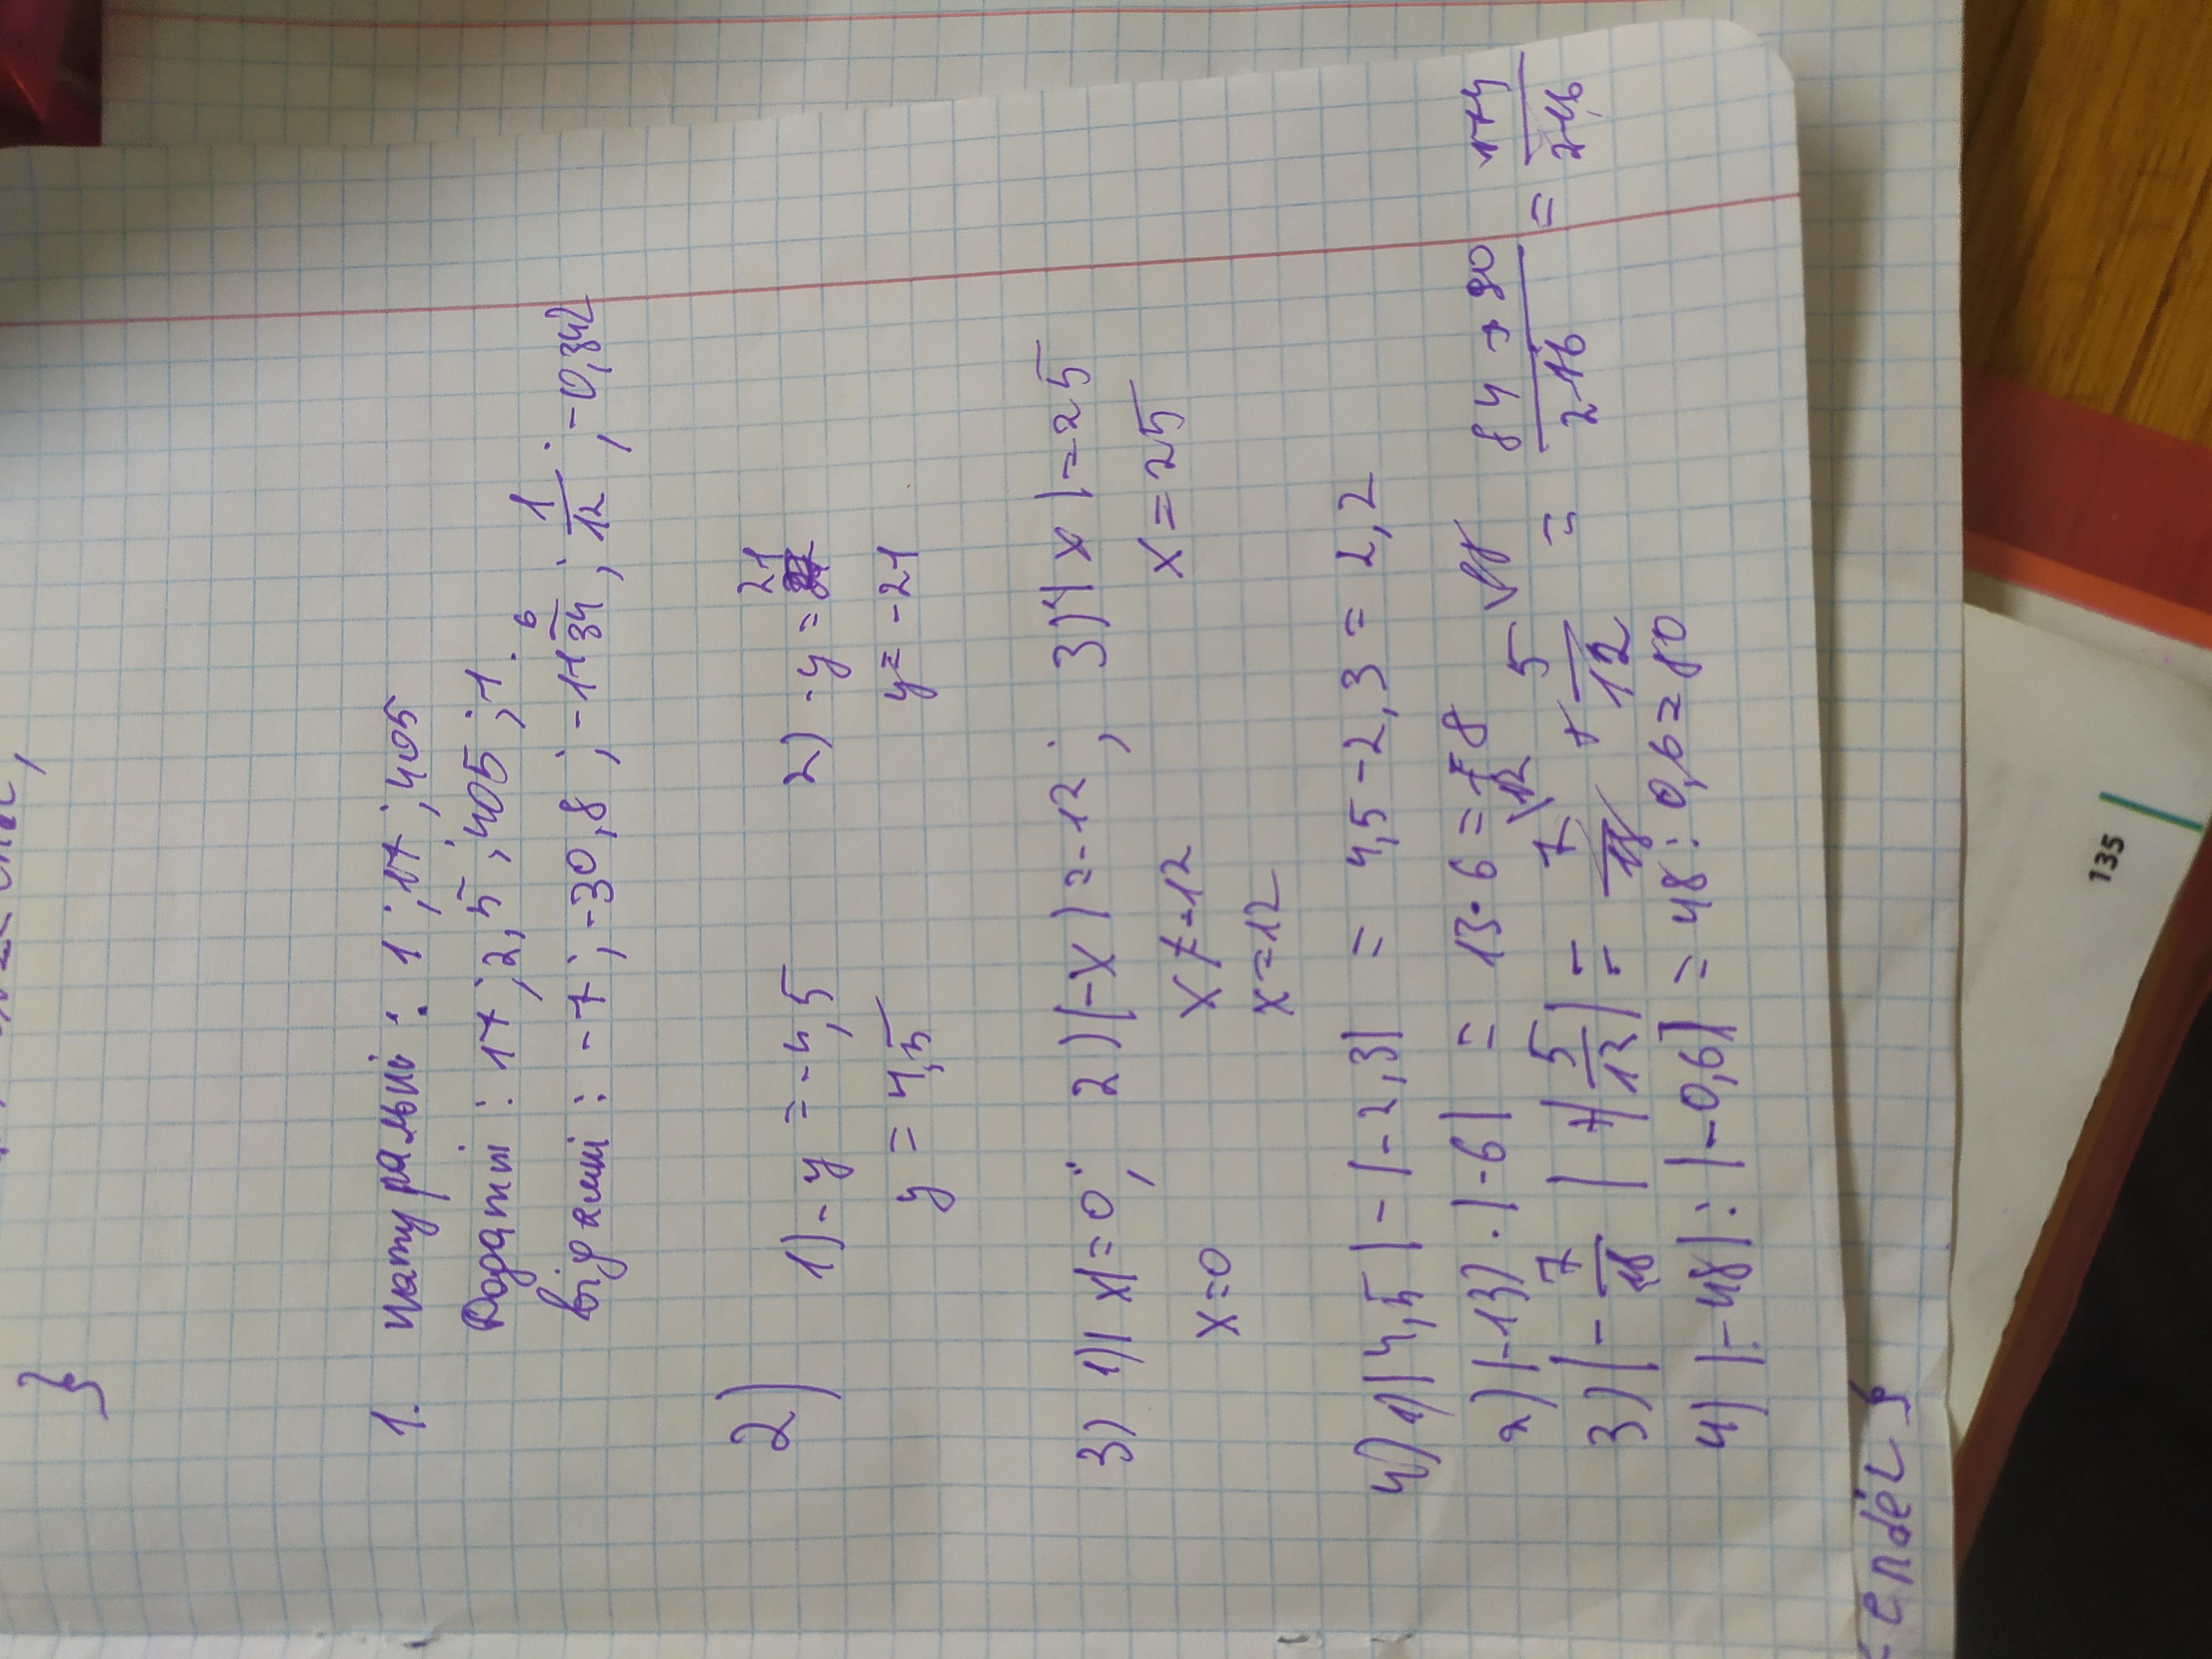 1. натуральні : 1 ; 17 ; 405
Додатні : 17 ; 2,5 ; 405 ; 1.
відємні : -7 ; -30,8 ; -11 6/34 ; 1/12 ; -0,342
2) 1) -y = -4,5 2) -y = 21
y = 4,5 y = -21
3) 1) |x|=0 ; 2) |-x|=-12 ; 3) |x|=25
x=0 x≠-12 x=25
x=12
4) 1) |4,5|-|-2,3| = 4,5-2,3 = 2,2
2) |-13|·|-6| = 13·6=78
3) |-7/18|+|5/12| = 7/18 + 5/12 = 84+90/216 = 174/216
4) |-48|:|-0,6| = 48:0,6=80
135